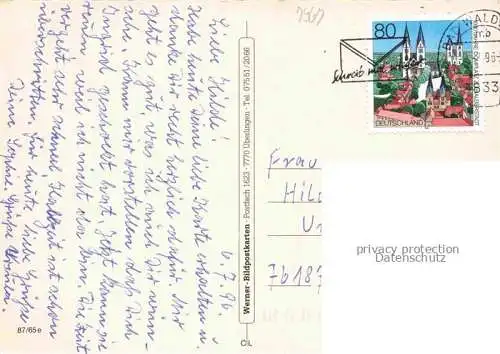 6.7.96.
Liebe Hilde!
Habe heute Deine liebe Karte erhalten u.
danke Dir recht herzlich dafür. Mir
geht es gut, was ich auch Dir wün-
sche. Kann mir vorstellen, daß Dich
geschockt hat. Jetzt kann sie
weil ich nicht da bin. Die Zeit
vergeht sehr schnell, Halbzeit ist schon
überschritten. Für heute liebe Grüße
Deine Grüße
87/65e
Werner-Bildpostkarten · Postfach 1623 · 7770 Überlingen · Tel. 07551/2066
80
DEUTSCHLAND
WALD
96-
33
Schreib mal wieder
Frau
Hil
Un
76187
privacy protection
Datenschutz